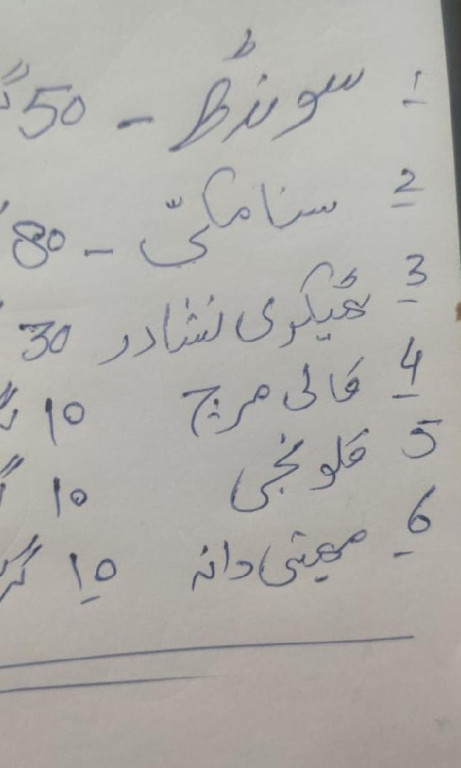 1 سونڈھ - 50 گ
2 سنا مکّی - 80
3 ٹھیکری نشادر 30
4 کالی مرچ 10 گ
5 کلونجی 10 گ
6 میتھی دانہ 10 گر